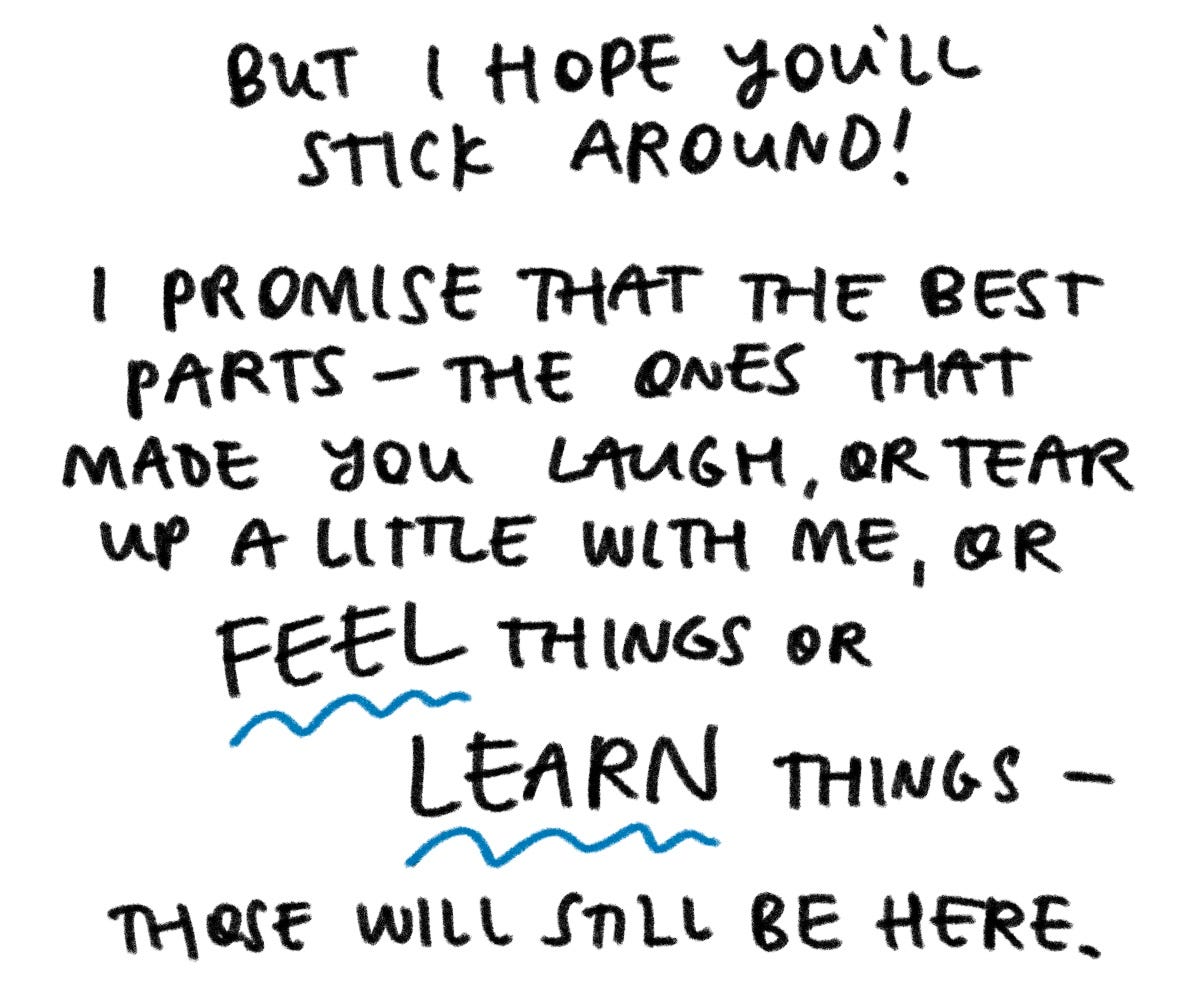 BUT I HOPE YOU'LL
STICK AROUND!
I PROMISE THAT THE BEST
PARTS – THE ONES THAT
MADE YOU LAUGH, OR TEAR
UP A LITTLE WITH ME, OR
FEEL THINGS OR
LEARN THINGS –
THOSE WILL STILL BE HERE.